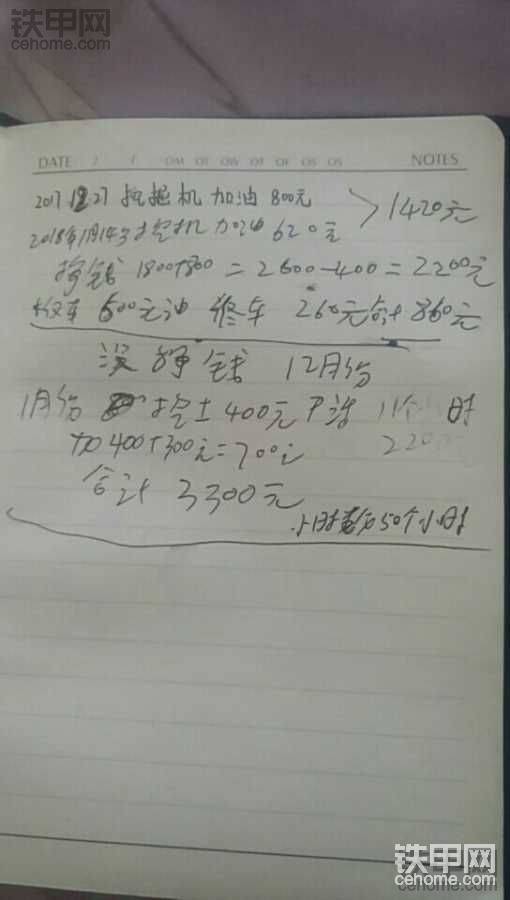 铁甲网
cehome.com
DATE / / OM OT OW OT OF OS OS NOTES
2017 12 27 挖掘机 加油 800元
2018年1月14号 挖机 加油 620元 > 1420元
挣钱 1800+800 = 2600-400 = 2200元
600元油 修车 260元 合计 860元
没挣钱 12月份
1月份 挖土 400元 11个小时
加400+300元=700元 220
合计 3300元
小时 50个小时
铁甲网
cehome.com